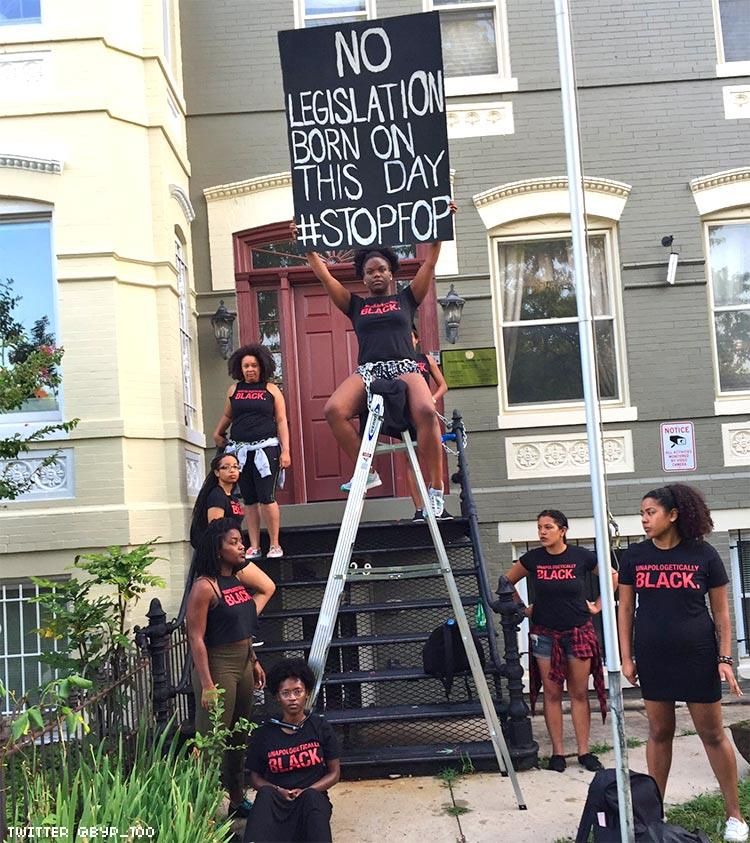 NO
LEGISLATION
BORN ON
THIS DAY
#STOPFOP
BLACK.
BLACK.
BLACK.
BLACK.
UNAPOLOGETICALLY
BLACK.
UNAPOLOGETICALLY
BLACK.
UNAPOLOGETICALLY
BLACK.
NOTICE
ALL ACTIVITIES
MONITORED
BY VIDEO
CAMERA
TWITTER @BYP_100